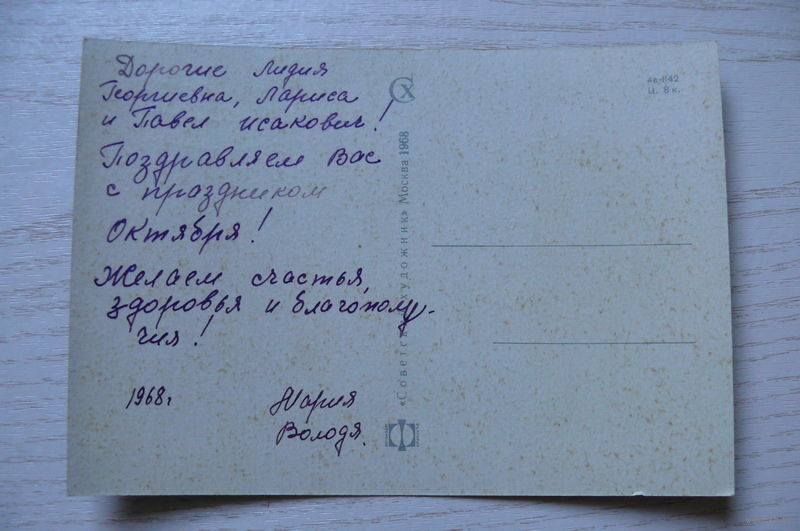 Дорогие Лидия
Георгиевна, Лариса
и Павел Исакович!
Поздравляем Вас
с праздником
Октября!
Желаем счастья,
здоровья и благополу-
чия!
1968г
Мария
Володя.
«Советский художник» Москва 1968
4в-1142
Ц. 8 к.